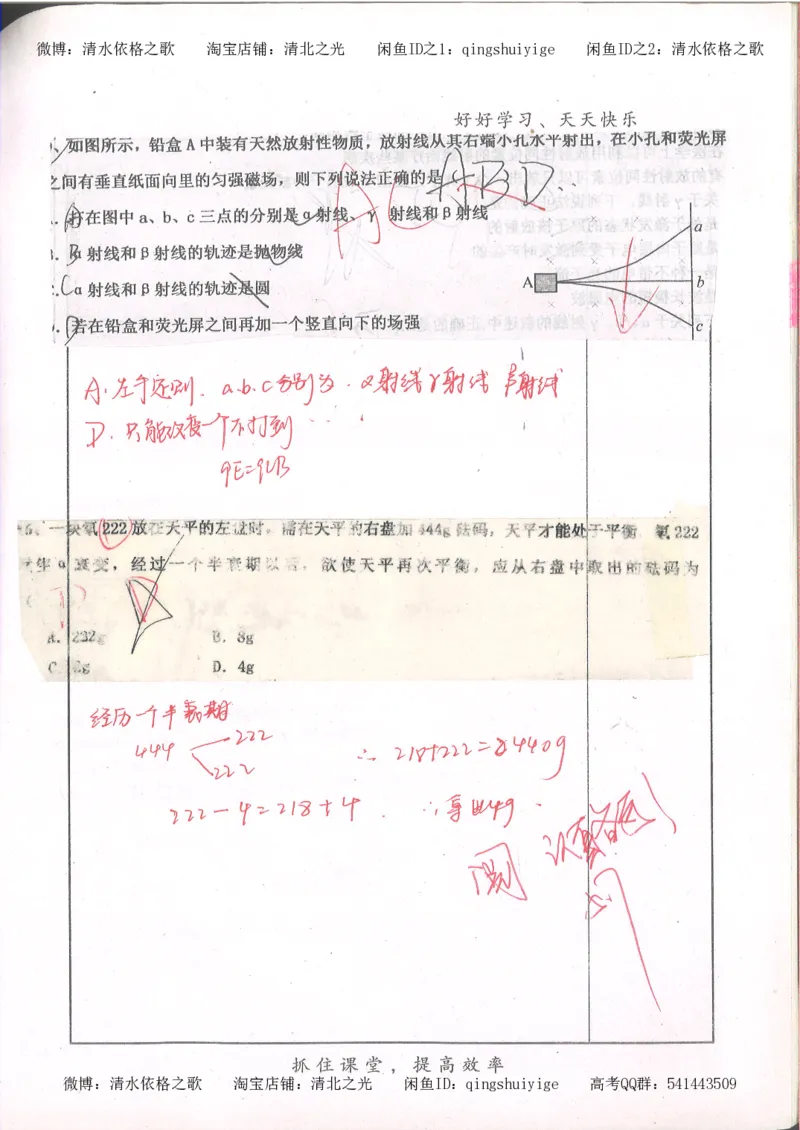 微博：清水依格之歌 淘宝店铺：清北之光 闲鱼ID之1：qingshuiyige 闲鱼ID之2：清水依格之歌
好好学习、天天快乐
如图所示，铅盒A中装有天然放射性物质，放射线从其右端小孔水平射出，在小孔和荧光屏
之间有垂直纸面向里的匀强磁场，则下列说法正确的是
ABD
AC
打在图中a、b、c三点的分别是α射线、γ 射线和β射线
α射线和β射线的轨迹是抛物线
α射线和β射线的轨迹是圆
若在铅盒和荧光屏之间再加一个竖直向下的场强
a
A b
c
A.左手定则. a.b.c分别为.α射线γ射线 β射线
D.只能改变一个不打到
qE=qvB
一块氡222放在天平的左盘时，需在天平的右盘加444g砝码，天平才能处于平衡 氡222
发生α衰变，经过一个半衰期以后，欲使天平再次平衡，应从右盘中取出的砝码为
A. 222g B. 8g
C. 2g D. 4g
经历一个半衰期
444 222
222
∴ 218+222=440g
222-4=218+4 ∴拿出4g
抓住课堂，提高效率
微博：清水依格之歌 淘宝店铺：清北之光 闲鱼ID：qingshuiyige 高考QQ群：541443509